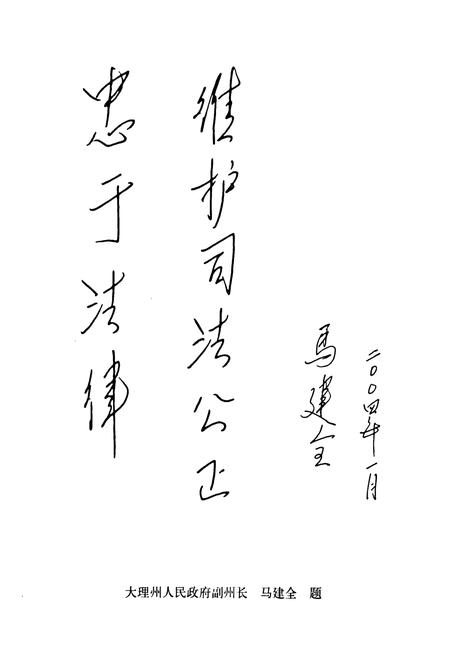 忠于法律
维护司法公正
马建全
二〇〇四年一月
大理州人民政府副州长 马建全 题